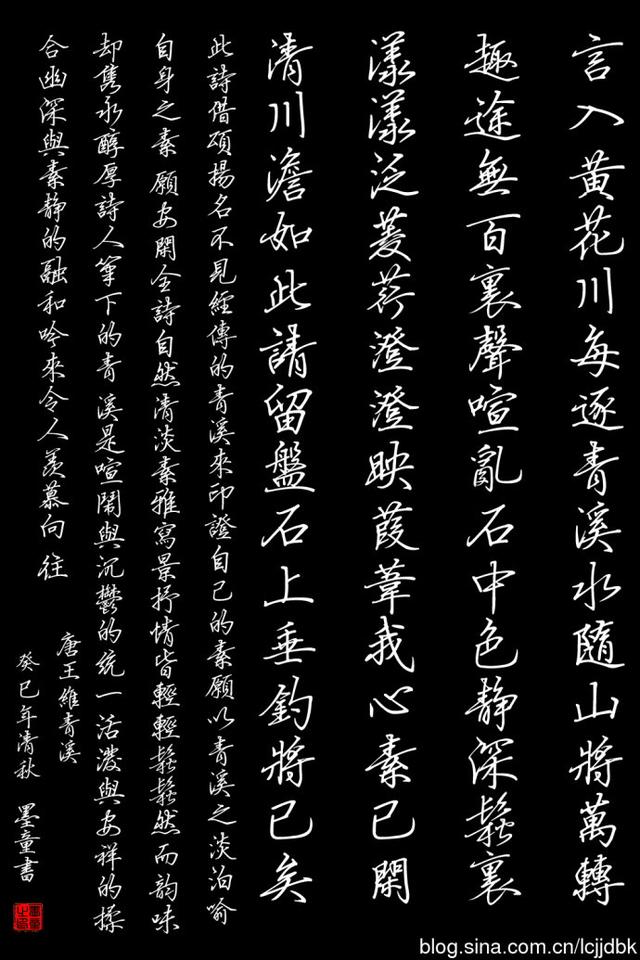 言入黄花川每逐青溪水隨山將萬轉
趣途無百裏聲喧亂石中色静深鬆裏
漾漾泛菱荇澄澄映葭葦我心素已閑
清川澹如此請留盤石上垂釣將已矣
此詩借頌揚名不見經傳的青溪來印證自己的素願以青溪之淡泊喻
自身之素願安閑全詩自然清淡素雅寫景抒情皆輕輕鬆鬆然而韵味
却雋永醇厚詩人筆下的青溪是喧鬧與沉鬱的统一活潑與安祥的揉
合幽深與素静的融和吟來令人羡慕向往
唐王維青溪
癸巳年清秋 墨童書
blog.sina.com.cn/lcjjdbk